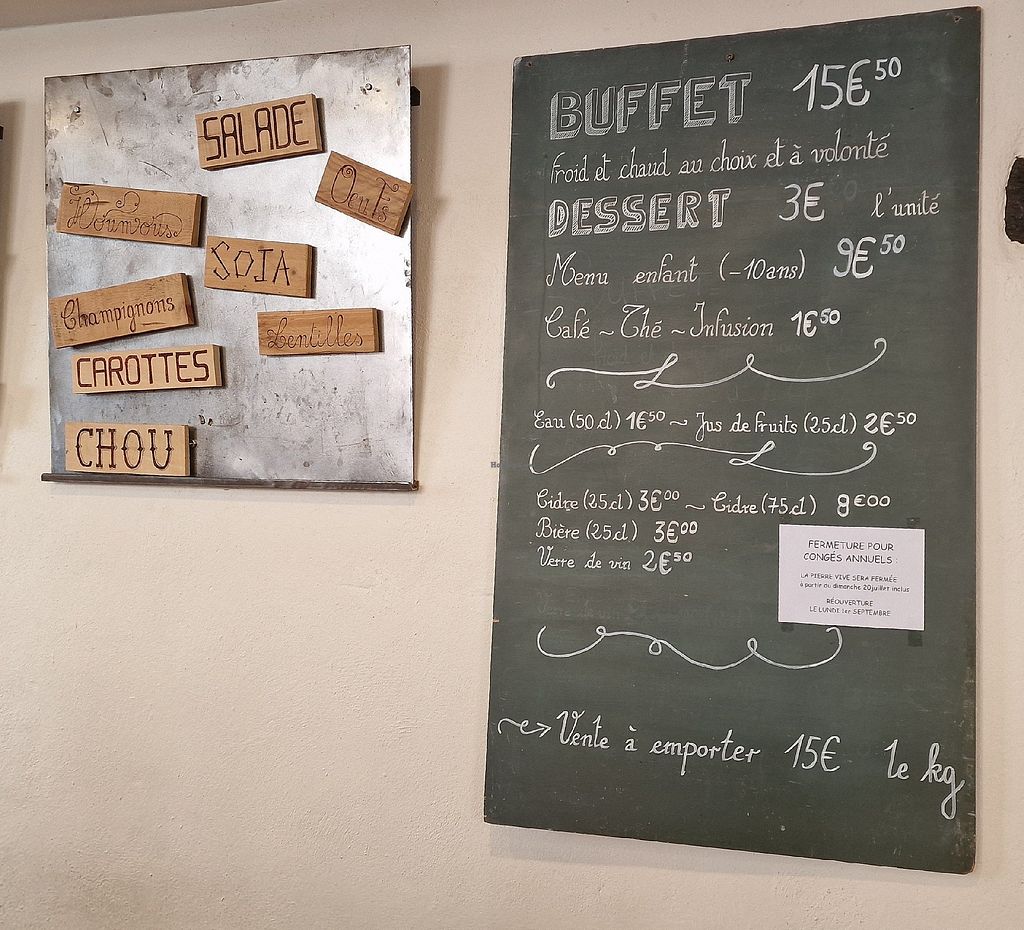 SALADE
Oeufs
Houmous
SOJA
Champignons
Lentilles
CAROTTES
CHOU
BUFFET 15€50
froid et chaud au choix et à volonté
DESSERT 3€ l'unité
Menu enfant (-10ans) 9€50
Café ~ Thé ~ Infusion 1€50
Eau (50 cl) 1€50 ~ Jus de fruits (25cl) 2€50
Cidre (25cl) 3€00 ~ Cidre (75cl) 8€00
Bière (25cl) 3€00
Verre de vin 2€50
FERMETURE POUR
CONGÉS ANNUELS :
LA PIERRE VIVE SERA FERMÉE
à partir du dimanche 20 juillet inclus
RÉOUVERTURE
LE LUNDI 1er SEPTEMBRE
Vente à emporter 15€ le kg